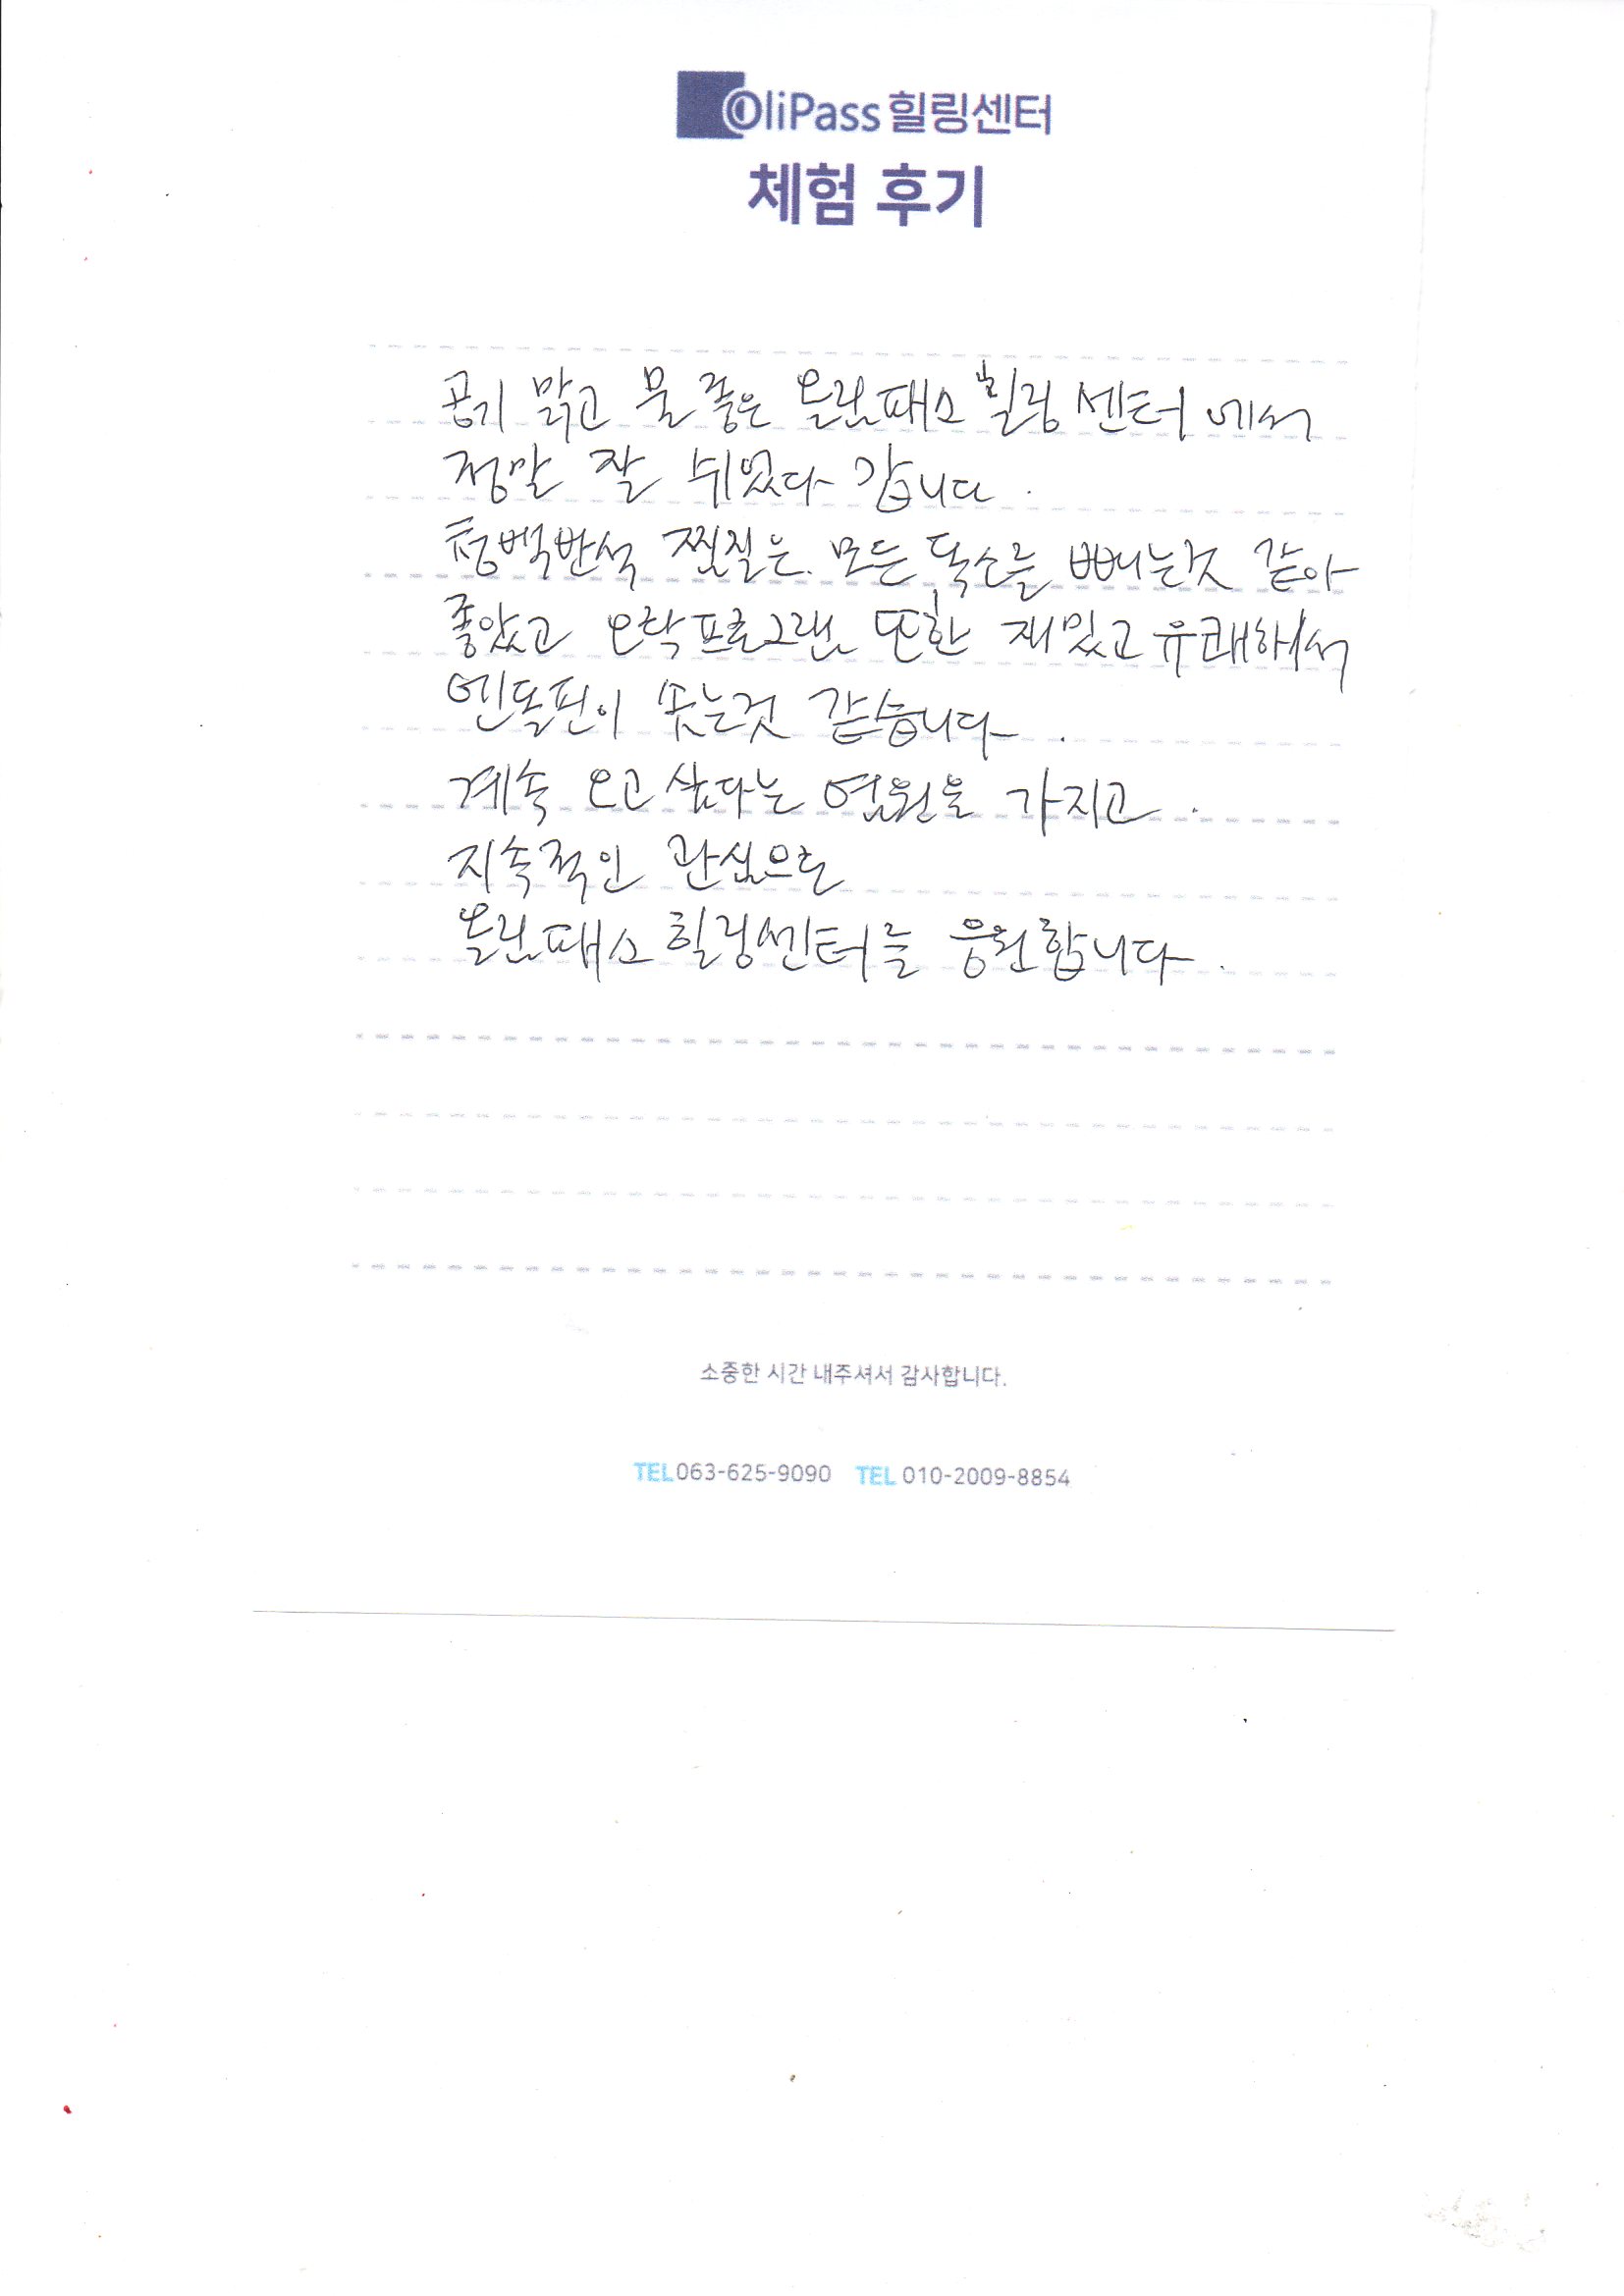 OliPass 힐링센터
체험 후기
공기 맑고 물 좋은 올림패스 힐링 센터에서
정말 잘 쉬었다 갑니다.
청벽반석 찜질은. 모든 독소를 빼는것 같아
좋았고 오락프로그램 또한 재밌고 유쾌해서
엔돌핀이 솟는것 같습니다.
계속 오고 싶다는 염원을 가지고.
지속적인 관심으로
올림패스 힐링센터를 응원합니다.
소중한 시간 내주셔서 감사합니다.
TEL 063-625-9090 TEL 010-2009-8854